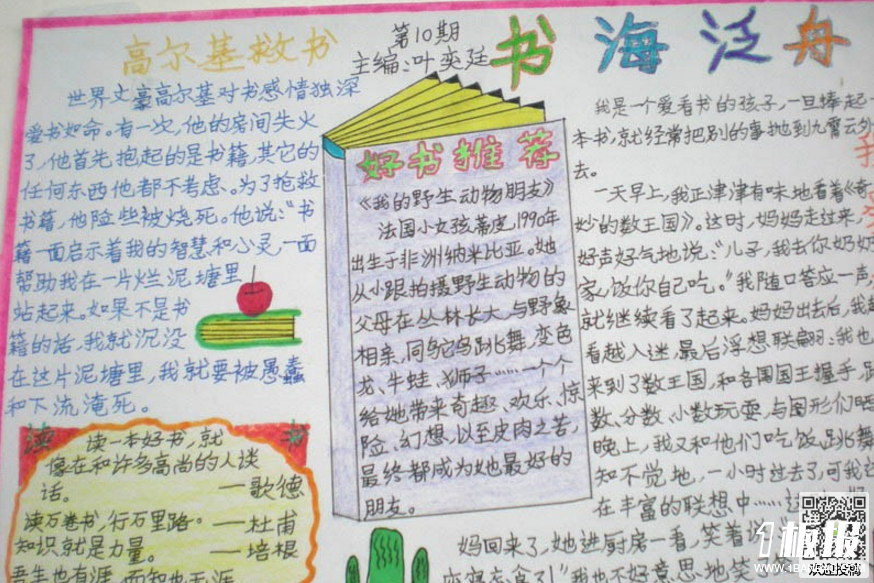 高尔基救书
世界文豪高尔基对书感情独深
爱书如命。有一次，他的房间失火
了，他首先抱起的是书籍，其它的
任何东西他都不考虑。为了抢救
书籍，他险些被烧死。他说："书
籍一面启示着我的智慧和心灵，一面
帮助我在一片烂泥塘里
站起来。如果不是书
籍的话，我就沉没
在这片泥塘里，我就要被愚蠢
和下流淹死。
读 书
读一本好书，就
像在和许多高尚的人谈
话。 —歌德
读万卷书，行万里路。—杜甫
知识就是力量。 —培根
吾生也有涯，而知也无涯
第10期
主编：叶奕廷
书海泛舟
好书推荐
《我的野生动物朋友》
法国小女孩蒂皮，1990年
出生于非洲纳米比亚。她
从小跟拍摄野生动物的
父母在丛林长大，与野象
相亲，同鸵鸟跳舞，变色
龙、牛蛙、狮子……一个个
给她带来奇趣、欢乐、惊
险、幻想，以至皮肉之苦，
最终都成为她最好的
朋友。
我是一个爱看书的孩子，一旦捧起一
本书，就经常把别的事抛到九霄云外
去。
一天早上，我正津津有味地看着《奇
妙的数王国》。这时，妈妈走过来，
好声好气地说："儿子，我去你奶奶
家，饭你自己吃。"我随口答应一声，
就继续看了起来。妈妈出去后，我越
看越入迷，最后浮想联翩：我也
来到了数王国，和各国国王握手，跟
数、分数、小数玩耍，与图形们
晚上，我又和他们吃饭、跳舞
知不觉地，一小时过去了，可我还
在丰富的联想中……
妈回来了，她进厨房一看，笑着说
我也不好意思地笑
1板报
WWW.1BANBAO.COM